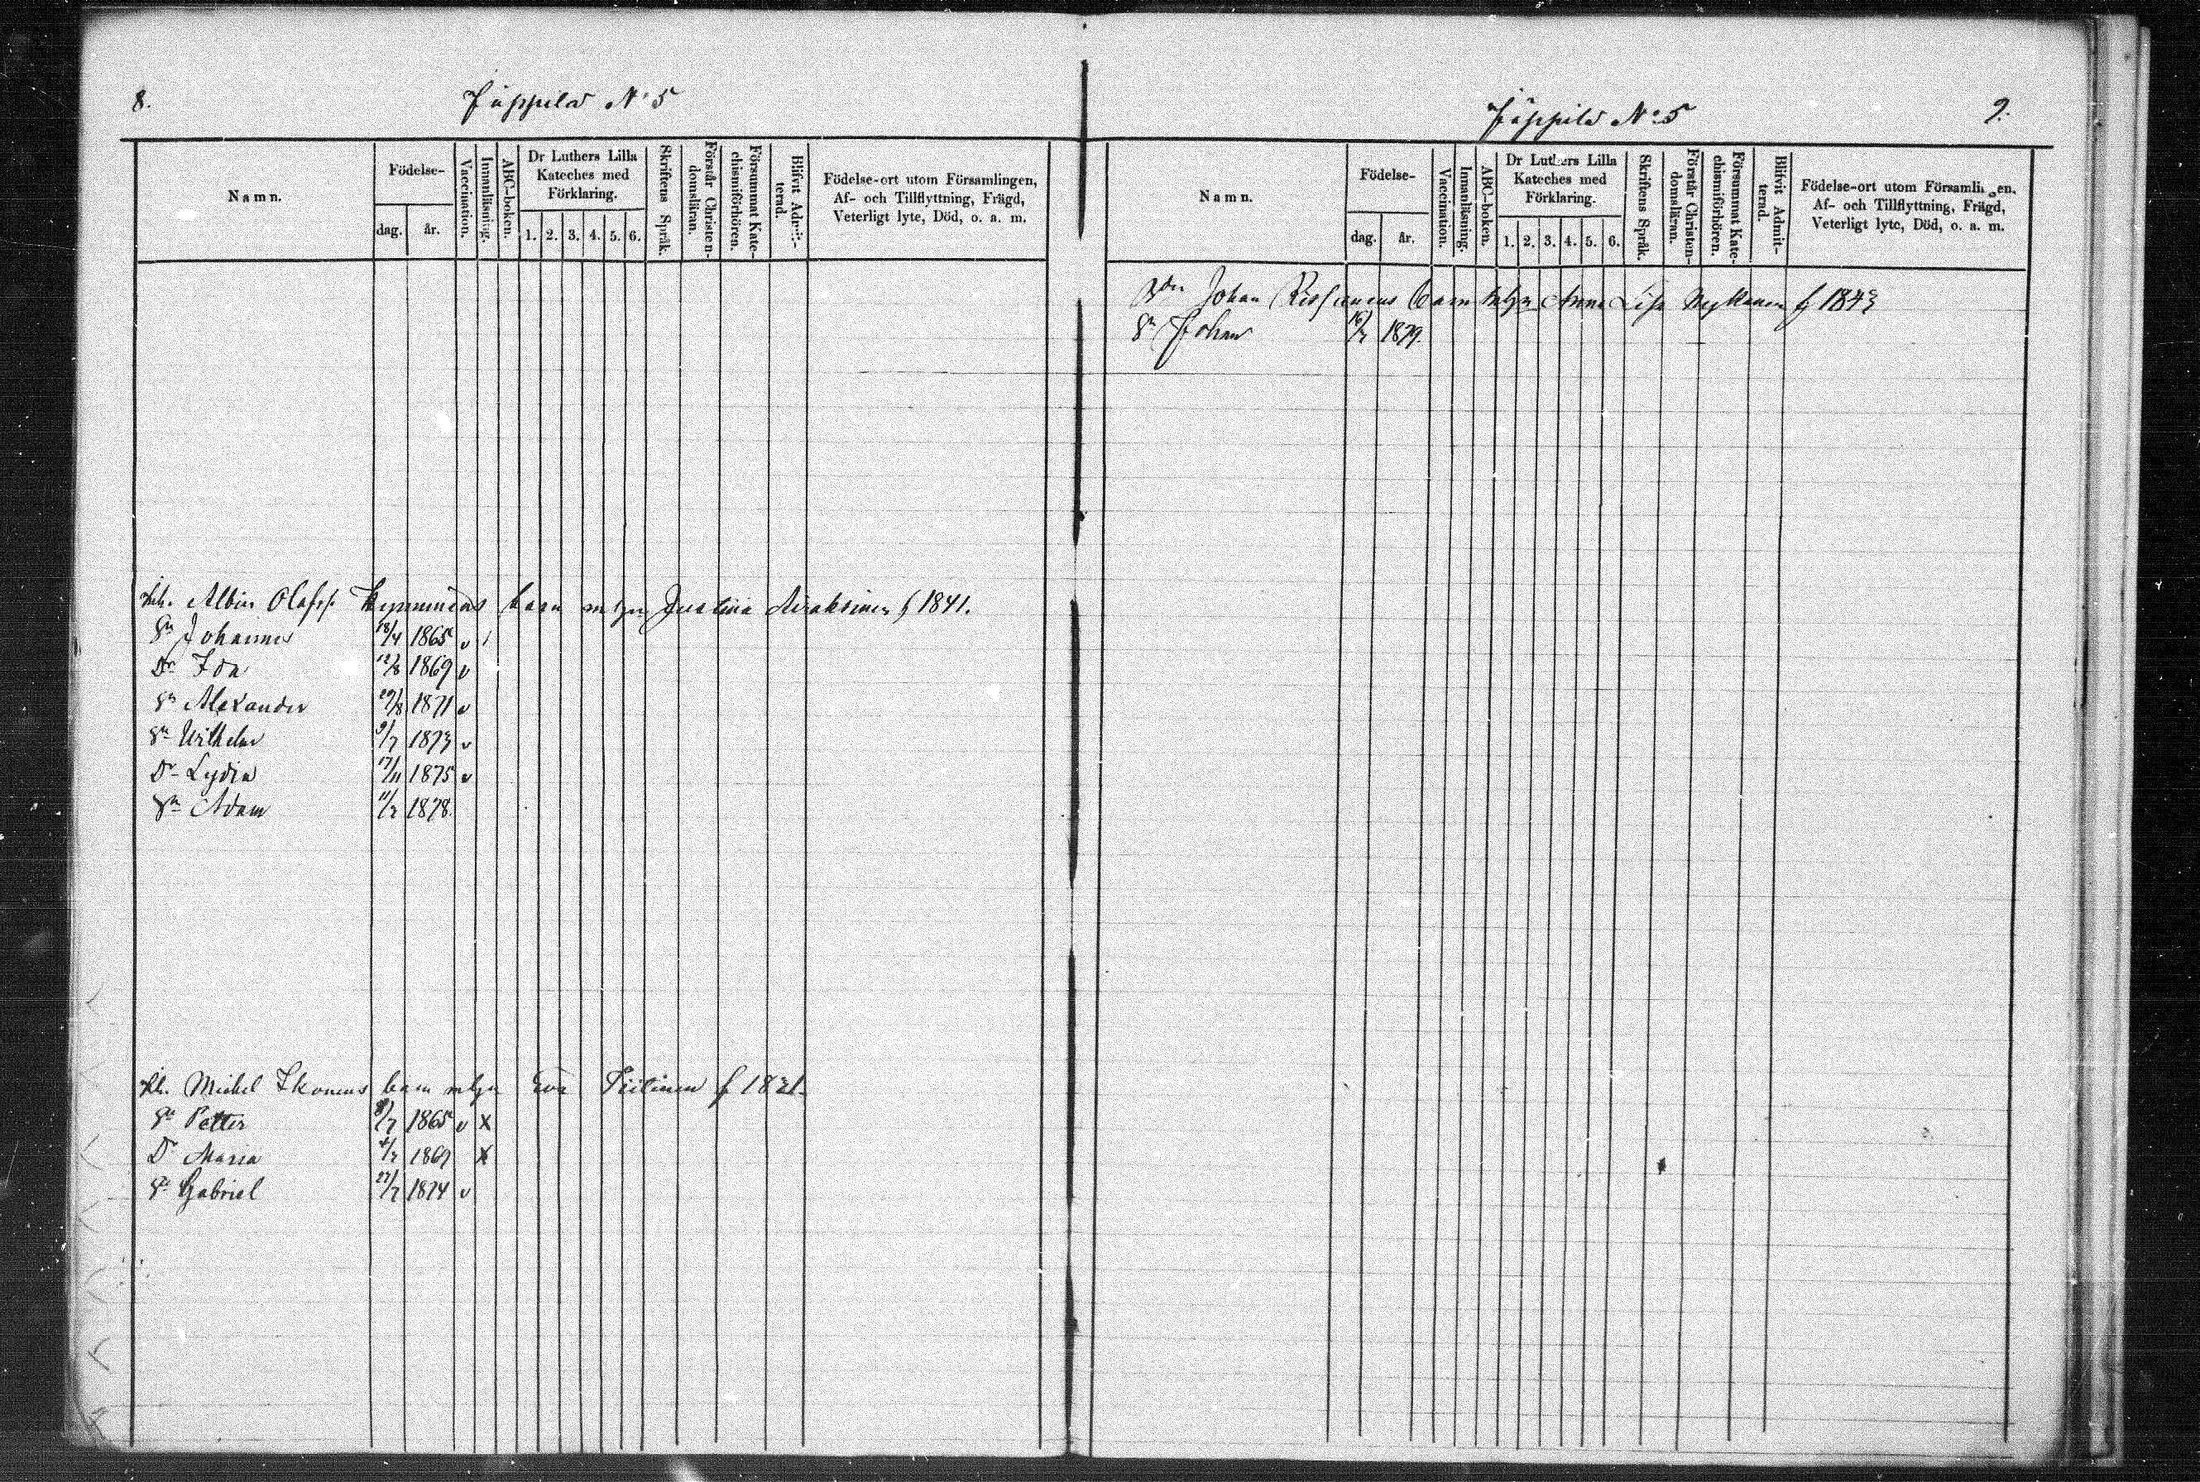 8.
Jäppilä No 5
Namn.
Födelse-
dag.
år.
Vaccination.
Innanläsning.
ABC-boken.
Dr Luthers Lilla
Kateches med
Förklaring.
1. 2. 3. 4. 5. 6.
Skriftens Språk.
Förstår Christen-
domsläran.
Försummat Kate-
chismiförhören.
Blifvit Admit-
terad.
Födelse-ort utom Församlingen,
Af- och Tillflyttning, Frägd,
Veterligt lyte, Död, o. a. m.
Inh. Albin Olafss. barn m hn Justina Airaksinen f 1841.
Sn Johannes 18/4 1865 v
Dr Ida 12/8 1869 v
Sn Alexander 29/8 1871 v
Sn Wilhelm 9/7 1873 v
Dr Lydia 17/11 1875 v
Sn Adam 11/3 1878.
Michel Ikonens barn Eva Piitinen f 1821.
Sn Petter 8/7 1865 v x
Dr Maria 4/3 1869 x
Sn Gabriel 27/7 1874 v
Jäppilä No 5
9.
Namn.
Födelse-
dag.
år.
Vaccination.
Innanläsning.
ABC-boken.
Dr Luthers Lilla
Kateches med
Förklaring.
1. 2. 3. 4. 5. 6.
Skriftens Språk.
Förstår Christen-
domsläran.
Försummat Kate-
chismiförhören.
Blifvit Admit-
terad.
Födelse-ort utom Församlingen,
Af- och Tillflyttning, Frägd,
Veterligt lyte, Död, o. a. m.
Johan barn Anna Lisa Nykänen f 1843
Sn Johan 16/3 1879.